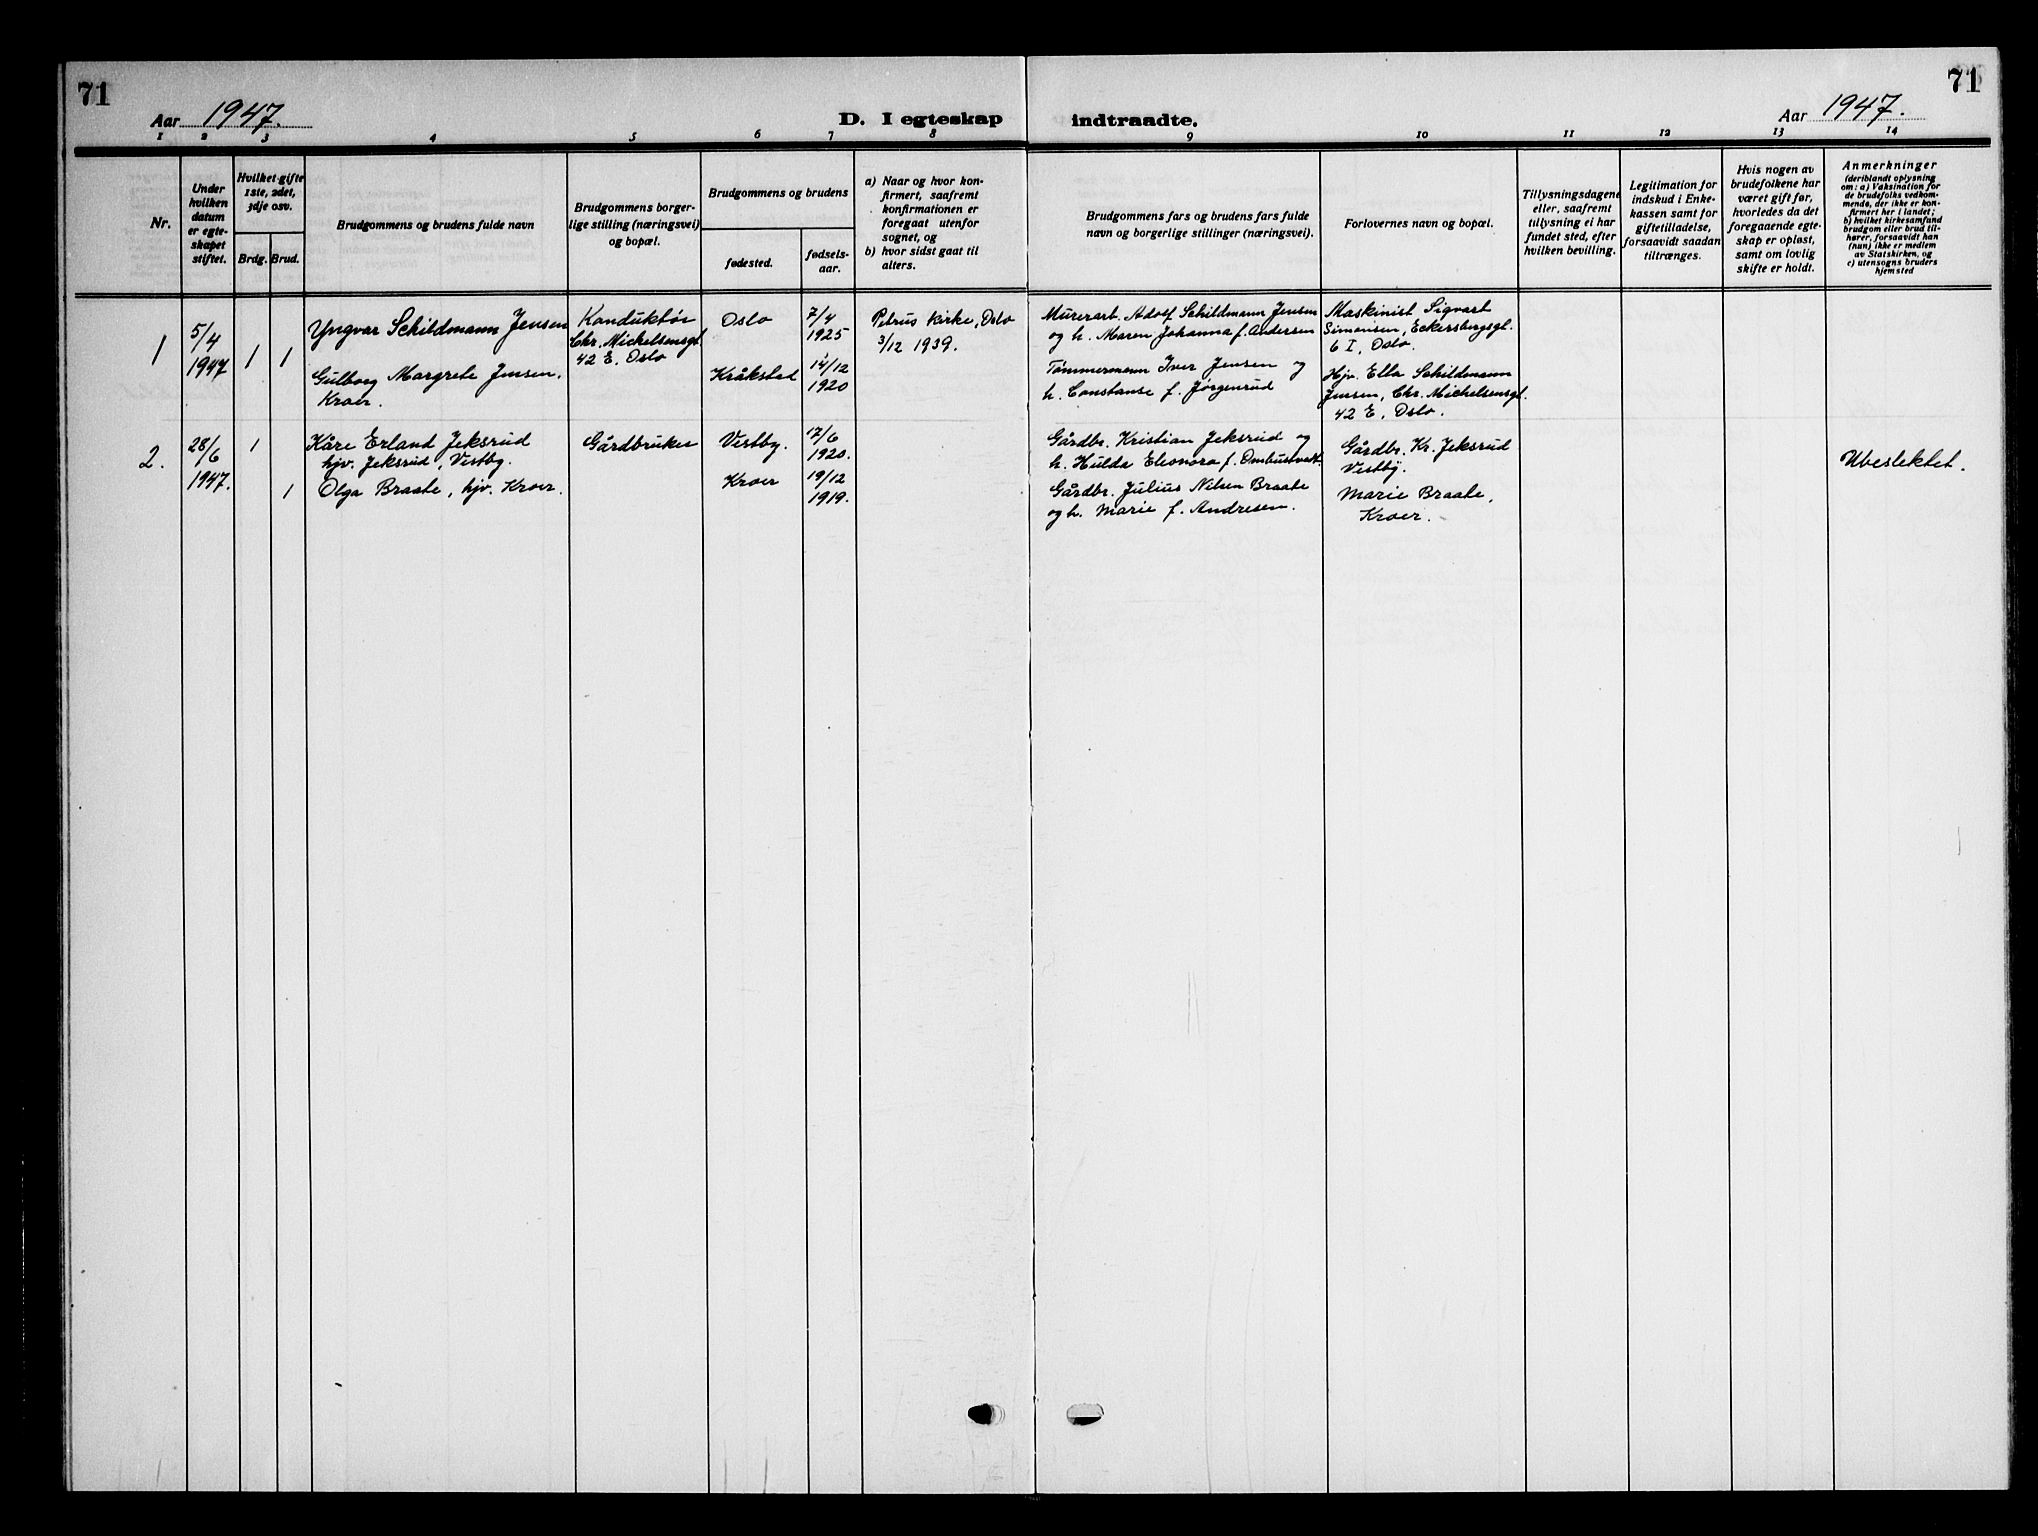 71
71
Aar 1947.
D. I egteskap
indtraadte.
Aar 1947.
1
2
3
4
5
6
7
8
9
10
11
12
13
14
Nr.
Under
hvilken
datum
er egte-
skapet
stiftet.
Hvilket gifte
1ste, 2det,
3dje osv.
Brdg.
Brud.
Brudgommens og brudens fulde navn
Brudgommens borger-
lige stilling (næringsvei)
og bopæl.
Brudgommens og brudens
fødested.
fødsels-
aar.
a) Naar og hvor kon-
firmert, saafremt
konfirmationen er
foregaat utenfor
sognet, og
b) hvor sidst gaat til
alters.
Brudgommens fars og brudens fars fulde
navn og borgerlige stillinger (næringsvei).
Forlovernes navn og bopæl.
Tillysningsdagene
eller, saafremt
tillysning ei har
fundet sted, efter
hvilken bevilling.
Legitimation for
indskud i Enke-
kassen samt for
giftetilladelse,
forsaavidt saadan
tiltrænges.
Hvis nogen av
brudefolkene har
været gift før,
hvorledes da det
foregaaende egte-
skap er opløst,
samt om lovlig
skifte er holdt.
Anmerkninger
(deriblandt oplysning
om: a) Vaksination for
de brudefolks vedkom-
mende, der ikke er kon-
firmert her i landet;
b) hvilket kirkesamfund
brudgom eller brud til-
hører, forsaavidt han
(hun) ikke er medlem
av Statskirken, og
c) utensogns bruders
hjemsted
1
5/4
1947
1
1
Yngvar Schildmann Jensen
Gulborg Margrete Jensen.
Kroer.
Konduktør
Chr. Michelsensgt.
42 E. Oslo
Oslo
Kråkstad
7/4
1925
14/12
1920
Petrus kirke, Oslo
3/12 1939.
Murerarb. Adolf Schildmann Jensen
og h. Maren Johanna f. Andersen
Tømmermann Iver Jensen og
h. Constanse f. Jørgenrud
Maskinist Sigvart
Simonsen, Eckersbergsgt.
6 I, Oslo.
Hjv. Ella Schildmann
Jensen, Chr. Michelsensgt.
42 E, Oslo.
2.
28/6
1947.
1
1
Kåre Erland Jeksrud
hjv. Jeksrud, Vestby.
Olga Braate, hjv. Kroer.
Gårdbruker
Vestby.
Kroer
17/6
1920.
19/12
1919.
Gårdbr. Kristian Jeksrud og
h. Hulda Eleonora f.
Gårdbr. Julius Nilsen Braate
og h. Marie f. Andresen.
Gårdbr. Kr. Jeksrud
Vestby.
Marie Braate,
Kroer.
Ubeslektet.